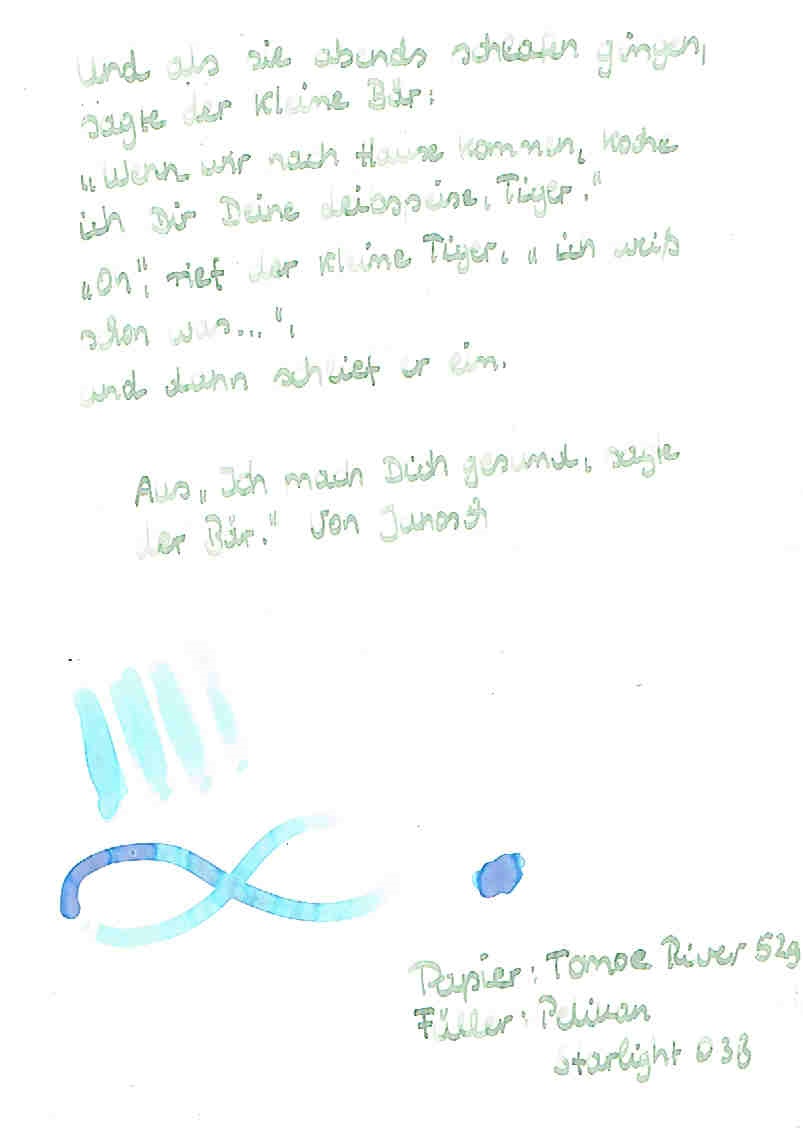 Und als sie abends schlafen gingen,
sagte der kleine Bär:
„Wenn wir nach Hause kommen, koche
ich Dir Deine Leibspeise, Tiger."
„Oh", rief der kleine Tiger, „ich weiß
schon was...",
und dann schlief er ein.
Aus „Ich mach Dich gesund, sagte
der Bär." Von Janosch
Papier: Tomoe River 52g
Füller: Pelikan
Starlight 03B